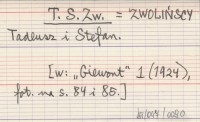 T. S. Zw. = ZWOLIŃSCY
Tadeusz i Stefan.
[w: „Giewont" 1 (1924),
fot. na s. 84 i 85.]